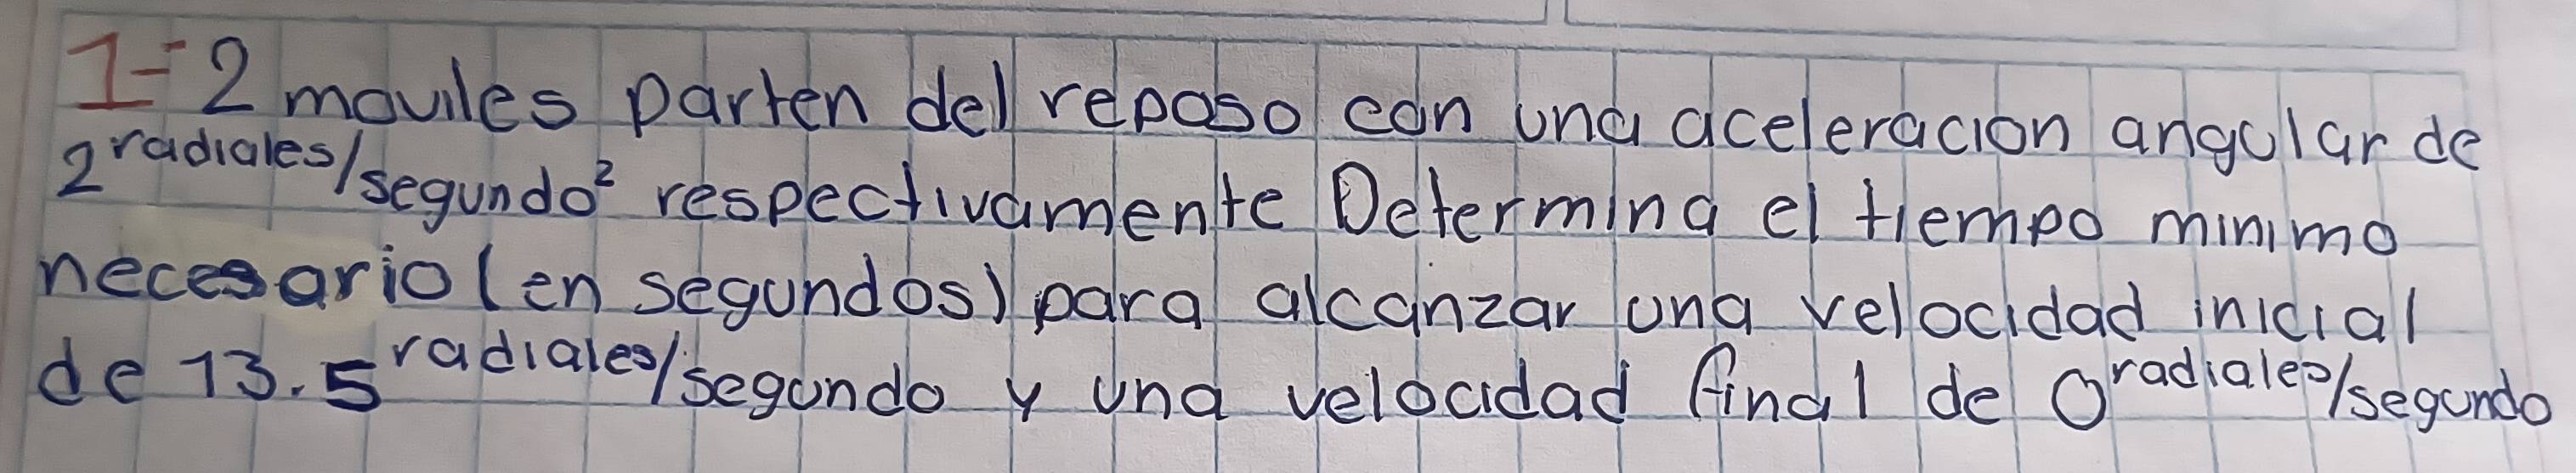 1= 2 moviles parten del reposo con una aceleracion angular de
2 radiales/segundo² respectivamente Determina el tiempo minimo
necesario (en segundos) para alcanzar una velocidad inicial
de 13.5 radiales/segundo y una velocidad final de 0 radiales/segundo